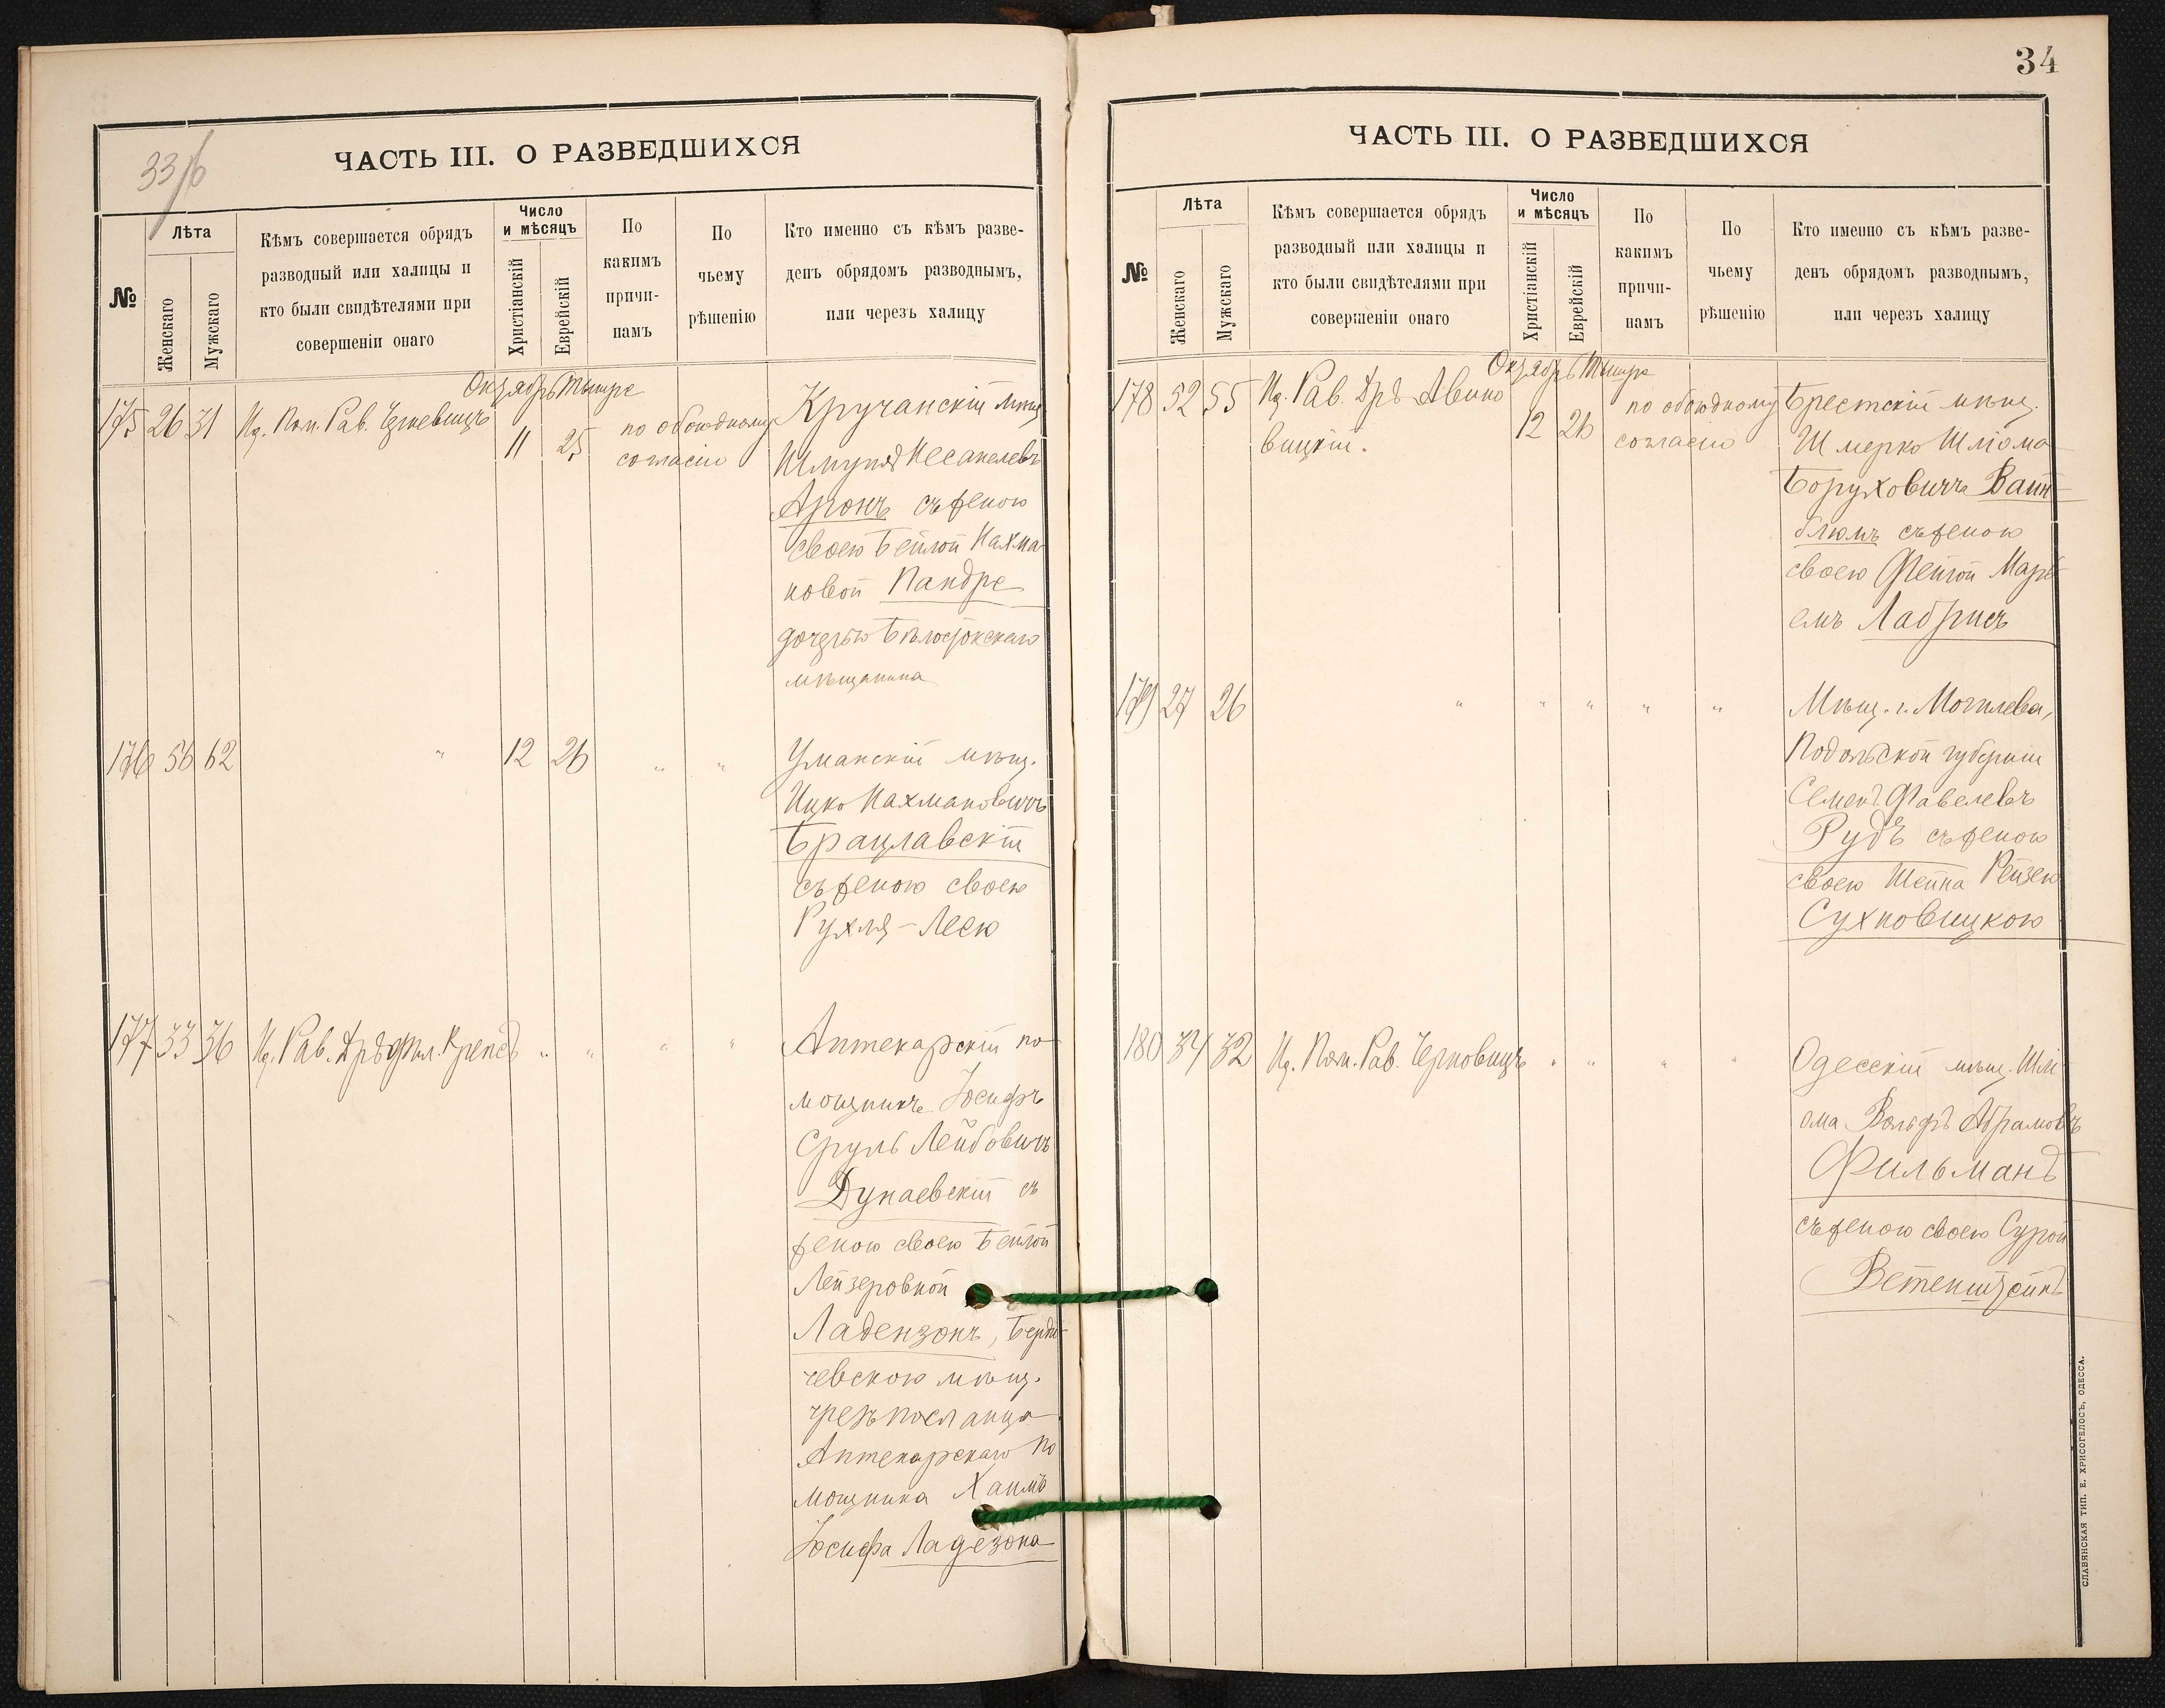 33/б
ЧАСТЬ III. О РАЗВЕДШИХСЯ
№
Лѣта
Женскаго
Мужскаго
Кѣмъ совершается обрядъ
разводный или халицы и
кто были свидѣтелями при
совершеніи онаго
Число
и мѣсяцъ
Христіанскій
Еврейскій
По
какимъ
причи-
намъ
По
чьему
рѣшенію
Кто именно съ кѣмъ разве-
денъ обрядомъ разводнымъ,
или черезъ халицу
Октябрь Тишре
175 26 31
Пом. Рав.
11 25
по обоюдному
согласію
Кручанскій мѣщ
Аронъ съ женою
своею Бейлой Нахма-
новой Пандре
дочерью Бѣлостокскаго
мѣщанина
176 56 62 " 12 26 " "
Уманскій мѣщ.
Ицко Нахмановичъ
Брацлавскій
съ женою своею
Рухля-Леею
177 33 36
Рав. Дръ Фил. Крепсъ " " " "
Аптекарскій по-
мощникъ Іосифъ
Сруль Лейбовичъ
Дунаевскій съ
женою своею Бейлой
Лейзеровной
Ладензонъ, Берди-
чевскою мѣщ.
чрезъ посланца
Аптекарскаго по
мощника Хаимъ
Іосифа Ладезона
34
ЧАСТЬ III. О РАЗВЕДШИХСЯ
№
Лѣта
Женскаго
Мужскаго
Кѣмъ совершается обрядъ
разводный или халицы и
кто были свидѣтелями при
совершеніи онаго
Число
и мѣсяцъ
Христіанскій
Еврейскій
По
какимъ
причи-
намъ
По
чьему
рѣшенію
Кто именно съ кѣмъ разве-
денъ обрядомъ разводнымъ,
или черезъ халицу
Октябрь Тишре
178 52 55
Рав. Дръ Авино
вицкій.
12 26
по обоюдному
согласію
Брестскій мѣщ.
Шмерко Шліома
Боруховичъ Вайн-
блюмъ съ женою
своею Фейгой Марь
емъ Лабрисъ
179 27 26 " " " " "
Мѣщ. г. Могилева,
Подольской губерніи
Семенъ Фавелевъ
Рудъ съ женою
своею Шейна Рейзею
Сухновицкою
180 34 32
Пом. Рав. Черновицъ " " " "
Одесскій мѣщ. Шлі
ома Вольфъ Абрамовъ
Фильманъ
съ женою своею Сурой
Ветенштейнъ
СЛАВЯНСКАЯ ТИП. Е. ХРИСОГЕЛОСЪ, ОДЕССА.